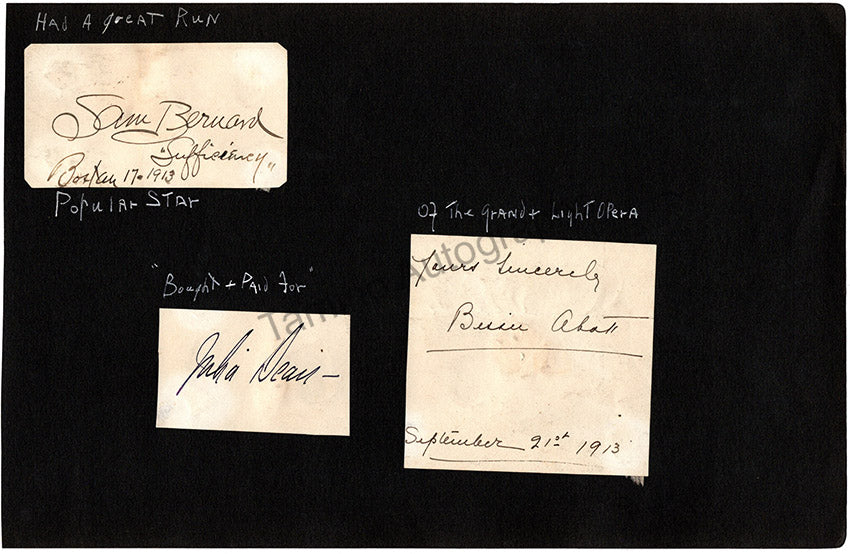 HAD A GREAT RUN
Sam Bernard
"Sufficiency"
Boston 17-1913
POPULAR STAR
OF THE GRAND + LIGHT OPERA
Yours Sincerely
Bessie Abott
September 21st 1913
"Bought + PAID FOR"
Julia Dean
Autogra